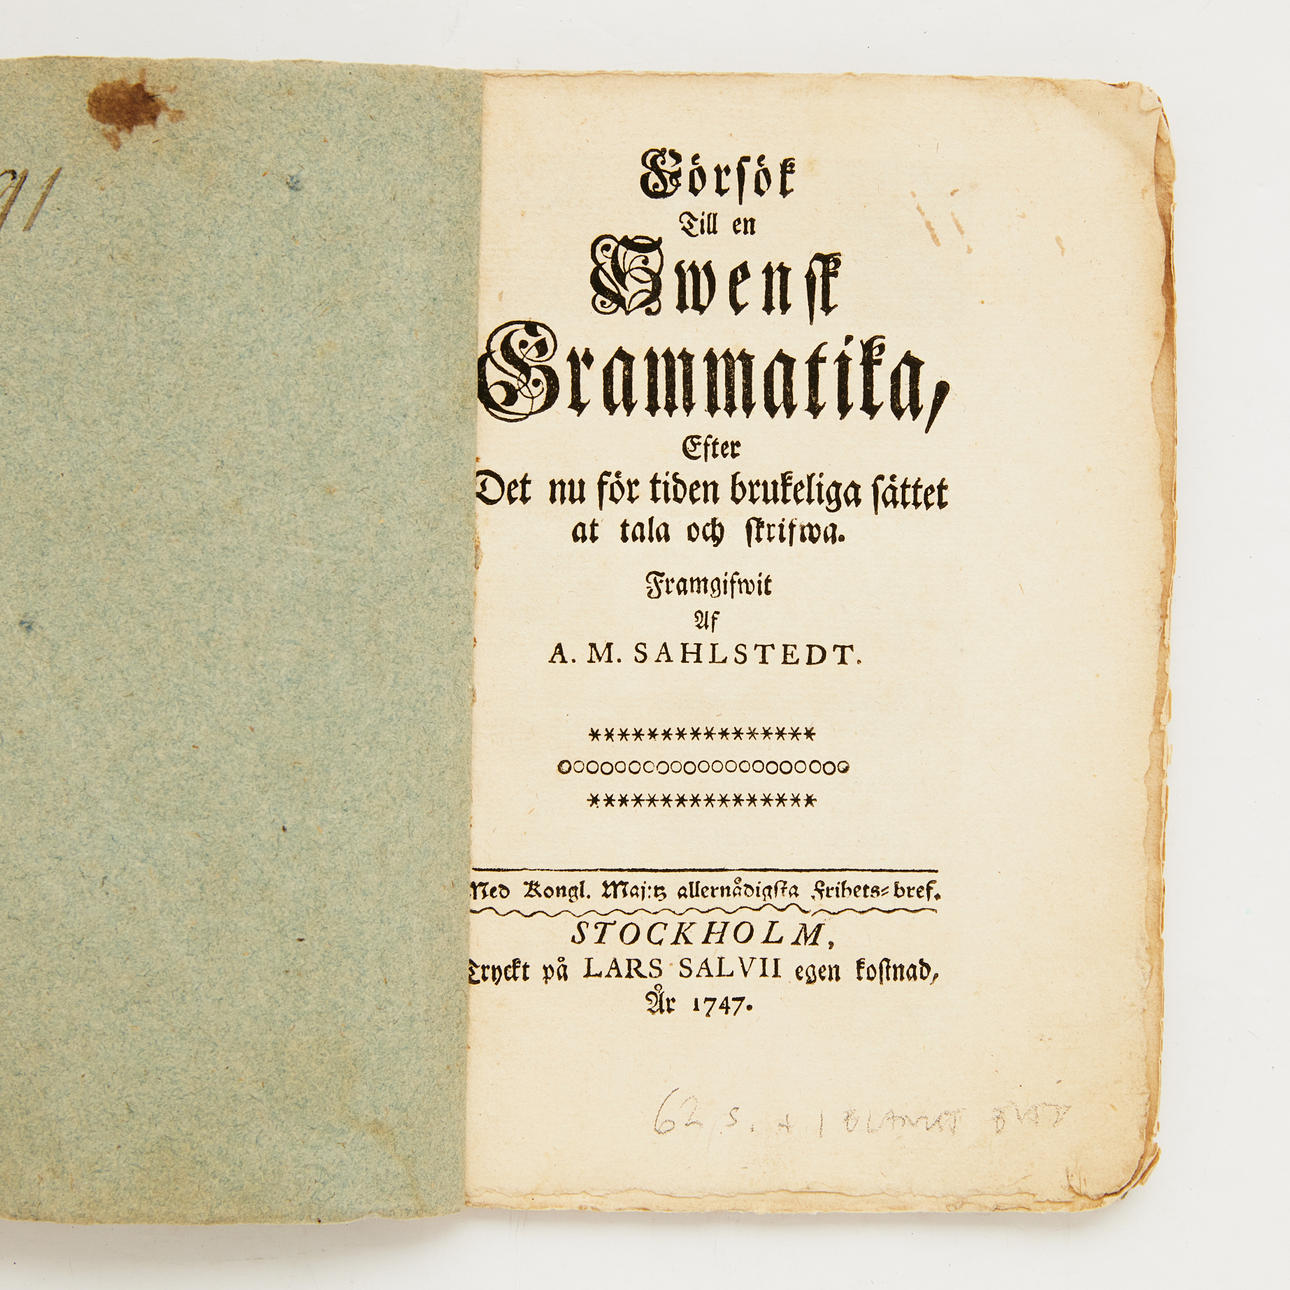 91
Försök
Till en
Swensk
Grammatika,
Efter
Det nu för tiden brukeliga sättet
at tala och skrifwa.
Framgifwit
Af
A. M. SAHLSTEDT.
****************
ooooooooooooooooooooo
****************
Med Kongl. Maj:tz allernådigsta Frihets-bref.
STOCKHOLM,
Tryckt på LARS SALVII egen kostnad,
År 1747.
62 s. + 1 BLANKT BLAD